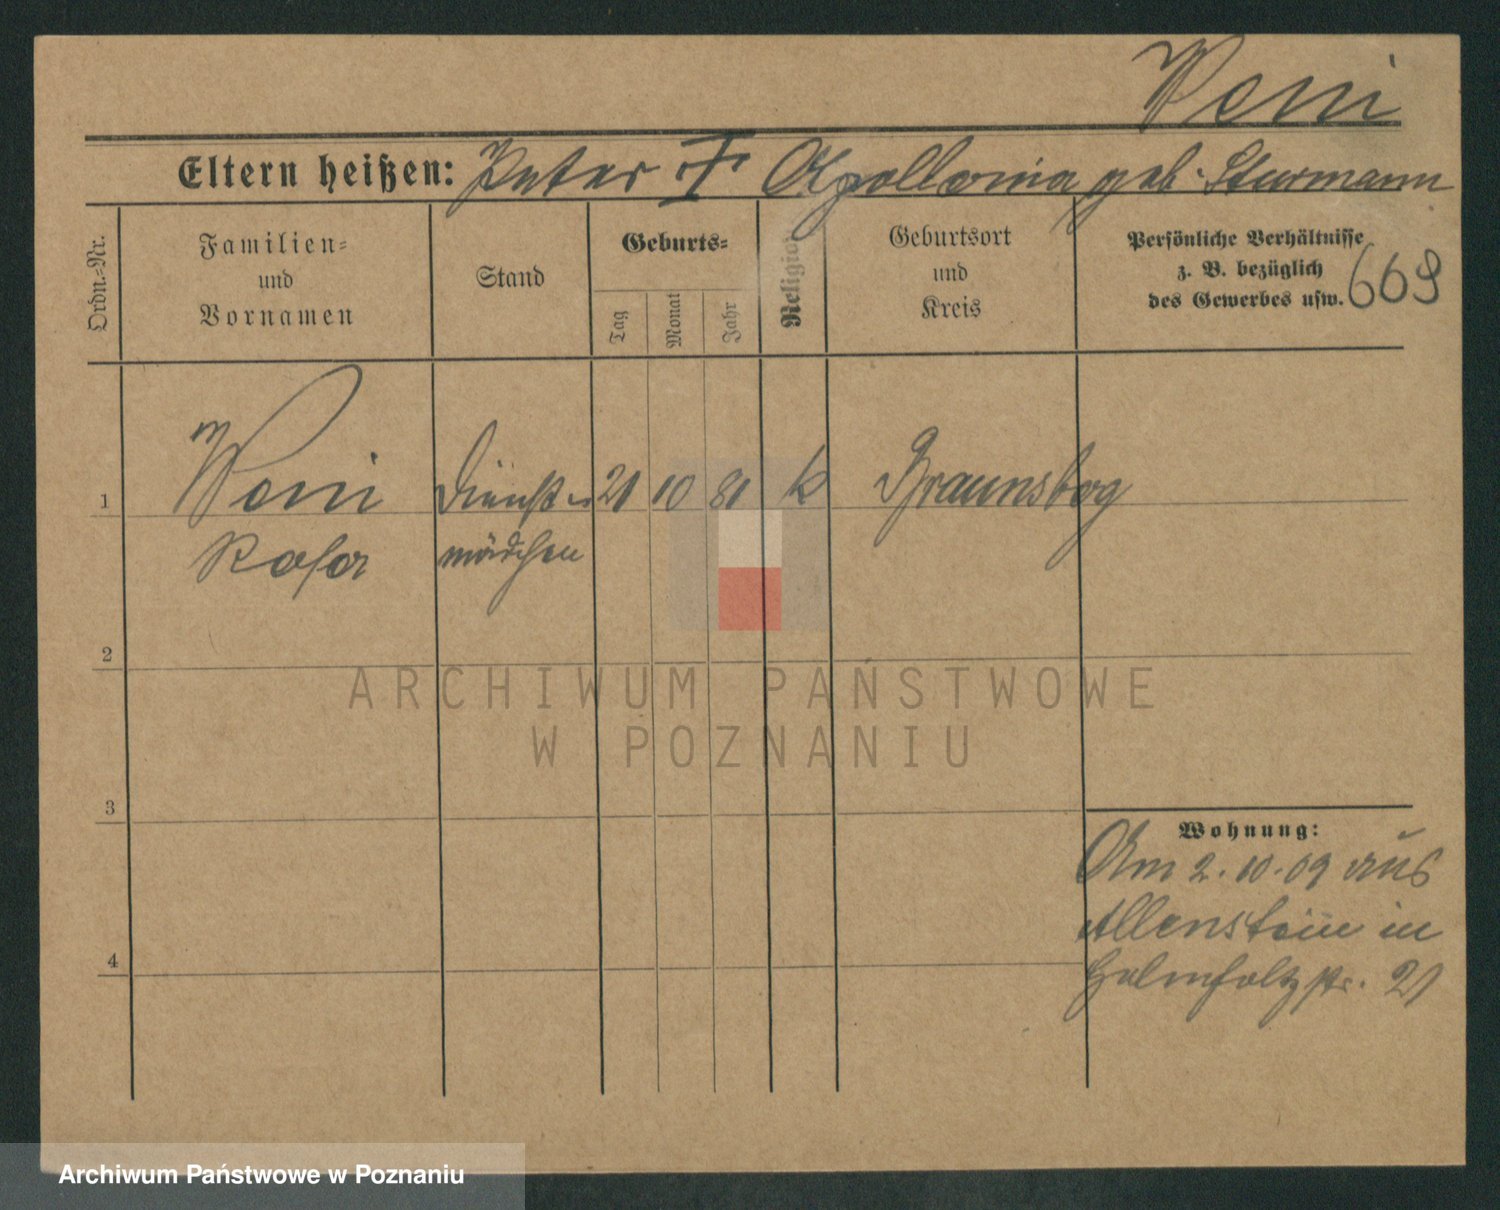 Weni
Eltern heißen: Peter † Apollonia geb. Sturmann
Ordn.-Nr.
Familien-
und
Vornamen
Stand
Geburts-
Tag
Monat
Jahr
Religion
Geburtsort
und
Kreis
Persönliche Verhältnisse
z. B. bezüglich
des Gewerbes usw.
669
1 Weni Dienst- 21 10 81 k Braunsberg
Rosa mädchen
2
3
4
Wohnung:
Am 2.10.09 aus
Allenstein in
Helmholtzstr. 21
ARCHIWUM PAŃSTWOWE
W POZNANIU
Archiwum Państwowe w Poznaniu